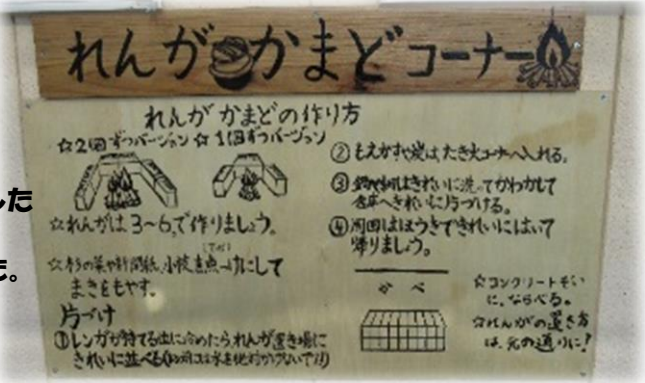 れんがかまどコーナー
れんが かまどの作り方
☆2個ずつバージョン ☆1個ずつバージョン
☆れんがは3〜6で作りましょう。
☆杉の葉や新聞紙、小枝を点けにして
まきをもやす。
片づけ
①レンガが持てる位に冷めたられんが置き場に
きれいに並べる
②もえかすや炭はたき火コーナーへ入れる。
③鍋や網はきれいに洗ってかわかして
倉庫へきれいに片づける。
④周囲はほうきできれいにはいて
帰りましょう。
かべ
☆コンクリートぞい
に、ならべる。
☆れんがの置き方
は、元の通りに!
した
。